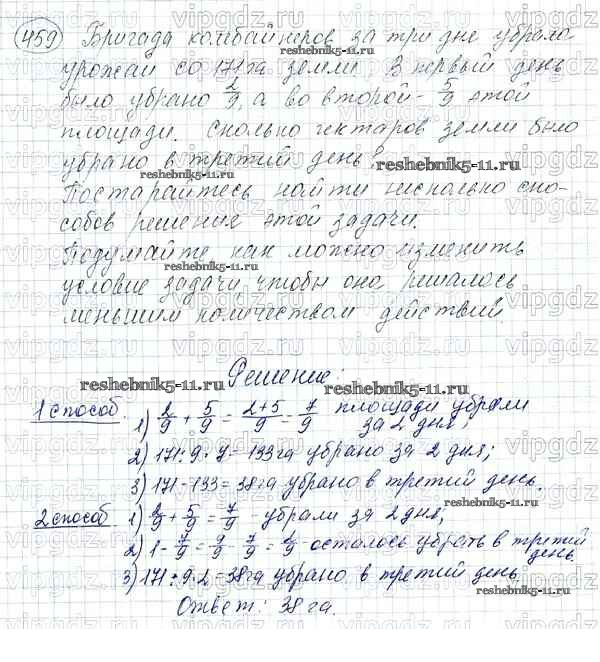 459 Бригада комбайнеров за три дне убрала
урожай со 171 га земли. В первый день
было убрано 2/9, а во второй - 5/9 этой
площади. Сколько гектаров земли было
убрано в третий день?
Постарайтесь найти несколько спо-
собов решения этой задачи.
Подумайте как можно изменить
условие задачи, чтобы она решалось
меньшим количеством действий
Решение:
1 способ. 1) 2/9 + 5/9 = 2+5/9 = 7/9 площади убрали
за 2 дня;
2) 171:9·7=133 га убрано за 2 дня;
3) 171-133=38 га убрано в третий день.
2 способ 1) 2/9 + 5/9 = 7/9 - убрали за 2 дня;
2) 1 - 7/9 = 9/9 - 7/9 = 2/9 осталось убрать в третий
день.
3) 171:9·2=38 га убрано в третий день.
Ответ: 38 га.
reshebnik5-11.ru
reshebnik5-11.ru
reshebnik5-11.ru
reshebnik5-11.ru
reshebnik5-11.ru
reshebnik5-11.ru
reshebnik5-11.ru
reshebnik5-11.ru
vipgdz